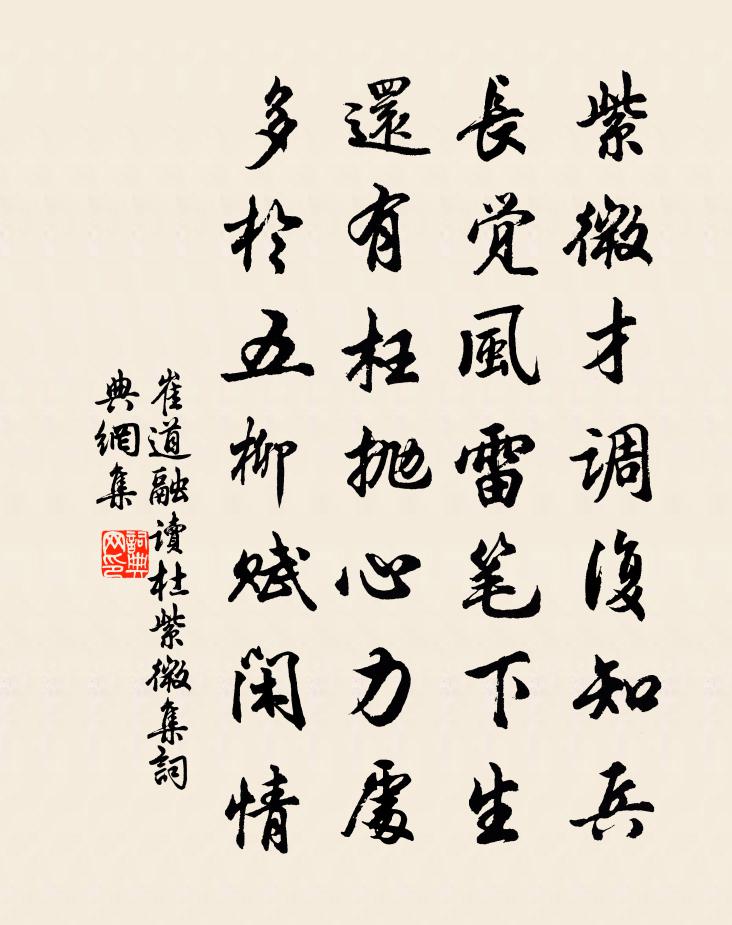 紫微才調復知兵
長覺風雷笔下生
還有枉抛心力處
多於五柳賦閑情
崔道融讀杜紫微集詞
典網集
詞典
网印